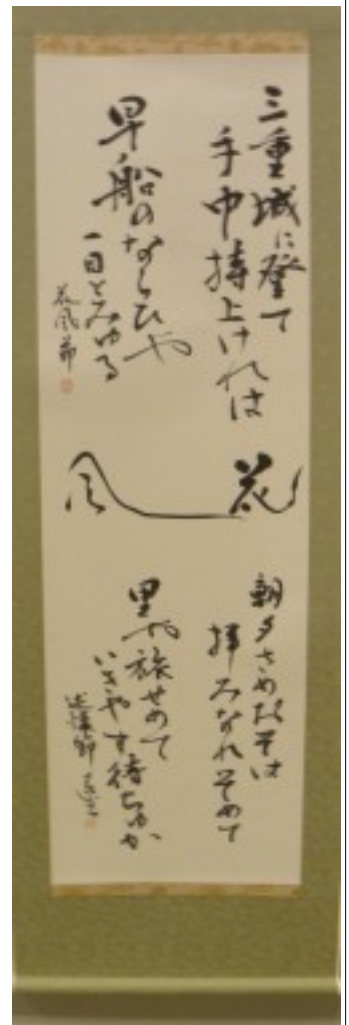 三重城に登て
手巾持上けれは
早船のならひや
一目とみゆる
花風節
花風
朝夕さめおそは
拝みなれそめて
里や旅せめて
いきやす待ちゆか
述懐節